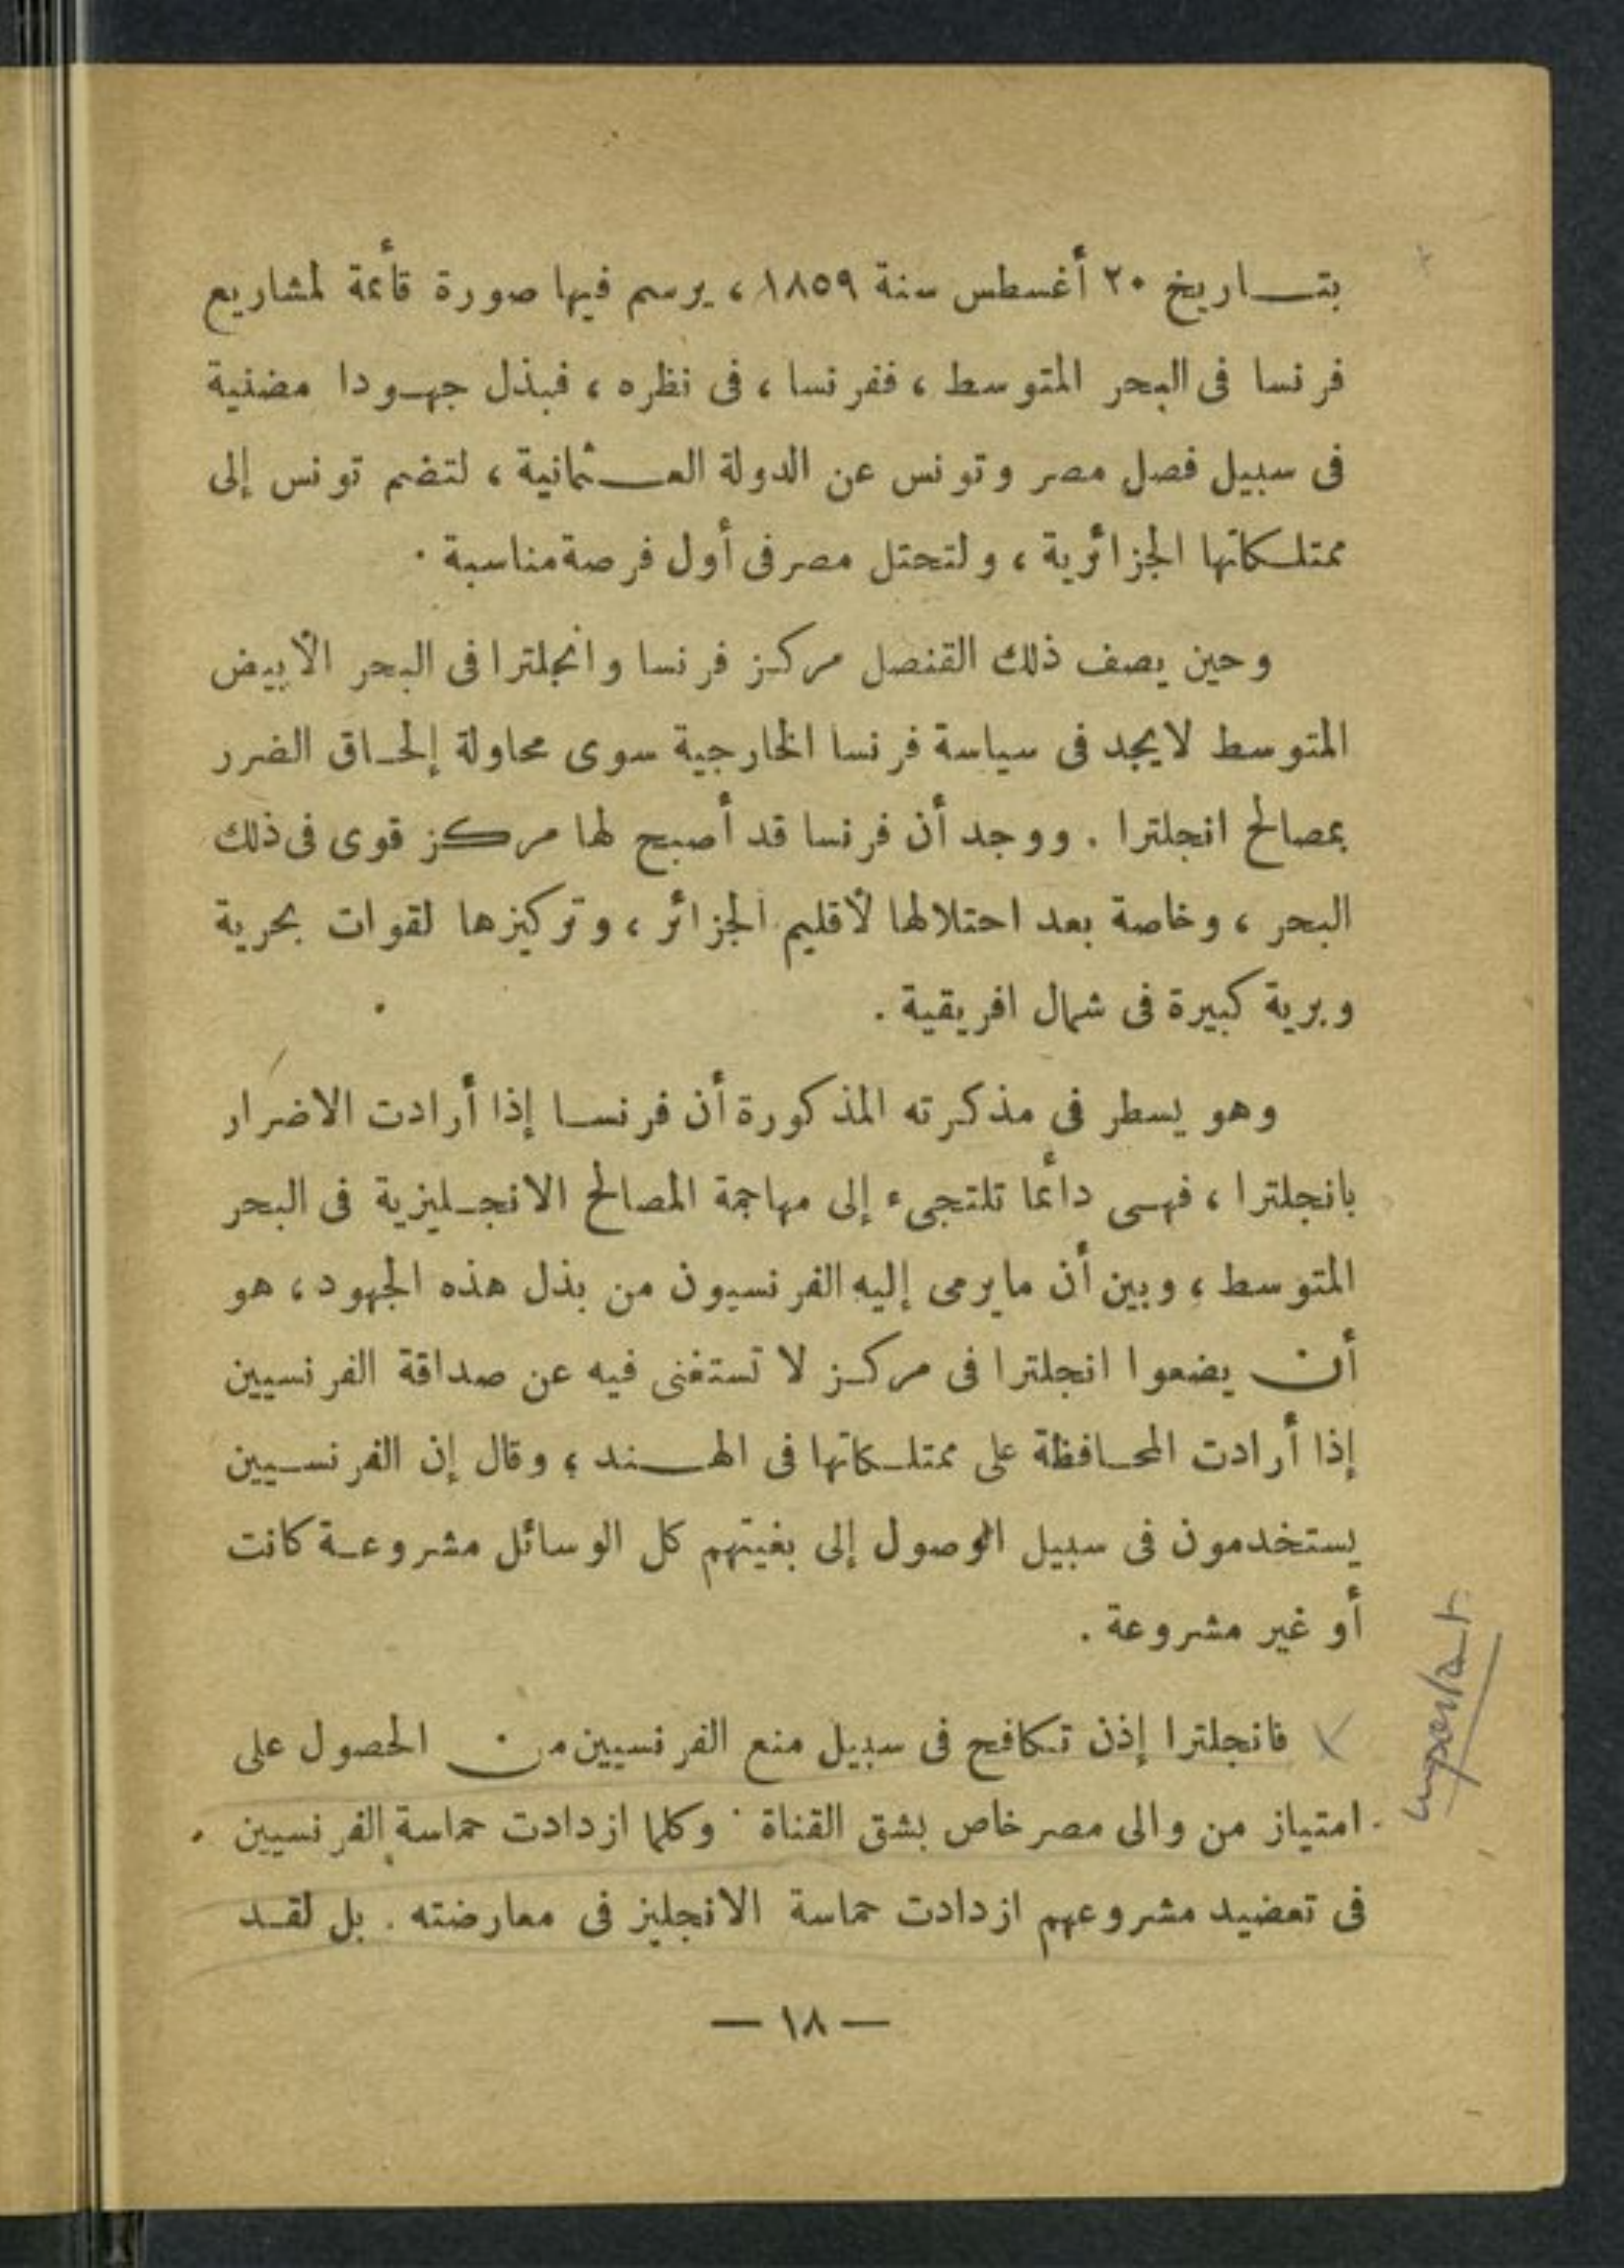 بتاريخ ٢٠ أغسطس سنة ١٨٥٩ ، يرسم فيها صورة قائمة لمشاريع
فرنسا فى البحر المتوسط ، ففرنسا ، فى نظره ، فبذل جهودا مضنية
فى سبيل فصل مصر وتونس عن الدولة العثمانية ، لتضم تونس إلى
ممتلكاتها الجزائرية ، ولتحتل مصر فى أول فرصة مناسبة .
وحين يصف ذلك القنصل مركز فرنسا وانجلترا فى البحر الأبيض
المتوسط لا يجد فى سياسة فرنسا الخارجية سوى محاولة إلحاق الضرر
بمصالح انجلترا . ووجد أن فرنسا قد أصبح لها مركز قوى فى ذلك
البحر ، وخاصة بعد احتلالها لأقليم الجزائر ، وتركيزها لقوات بحرية
وبرية كبيرة فى شمال افريقية .
وهو يسطر فى مذكرته المذكورة أن فرنسا إذا أرادت الاضرار
بانجلترا ، فهى دائما تلتجىء إلى مهاجمة المصالح الانجليزية فى البحر
المتوسط ، وبين أن ما يرمى إليه الفرنسيون من بذل هذه الجهود ، هو
أن يضعوا انجلترا فى مركز لا تستغنى فيه عن صداقة الفرنسيين
إذا أرادت المحافظة على ممتلكاتها فى الهند ؛ وقال إن الفرنسيين
يستخدمون فى سبيل الوصول إلى بغيتهم كل الوسائل مشروعة كانت
أو غير مشروعة .
فانجلترا إذن تكافح فى سبيل منع الفرنسيين من الحصول على
امتياز من والى مصر خاص بشق القناة . وكلما ازدادت حماسة الفرنسيين
فى تعضيد مشروعهم ازدادت حماسة الانجليز فى معارضته . بل لقد
— ١٨ —
important